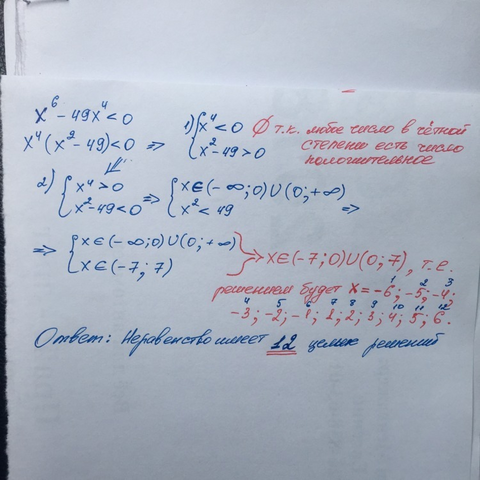 x⁶ - 49x⁴ < 0
x⁴(x² - 49) < 0 => 1) { x⁴ < 0
x² - 49 > 0
∅ т.к. любое число в чётной
степени есть число
положительное
2) { x⁴ > 0
x² - 49 < 0
=> { x ∈ (-∞; 0) ∪ (0; +∞)
x² < 49 =>
=> { x ∈ (-∞; 0) ∪ (0; +∞)
x ∈ (-7; 7)
} => x ∈ (-7; 0) ∪ (0; 7), т.е.
1 2 3
решением будет x = -6; -5; -4;
4 5 6 7 8 9 10 11 12
-3; -2; -1; 1; 2; 3; 4; 5; 6.
Ответ: Неравенство имеет 12 целых решений